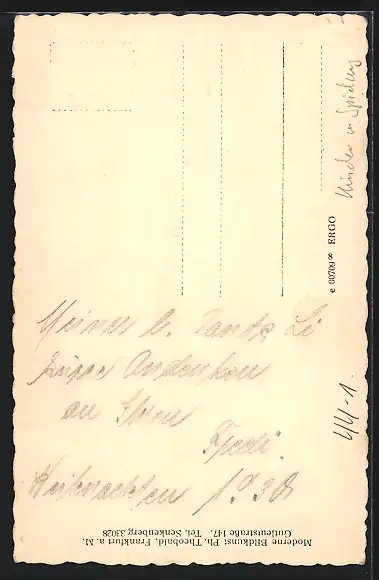 Meiner l. Tante Li
zum Andenken
an Ihren
Fredi.
Weihnachten 1938
Kinder u Spielzeug
44-1
e 00709 8 ERGO
Moderne Bildkunst Ph. Theobald, Frankfurt a. M.
Gutleutstraße 147, Tel. Senkenberg 33028